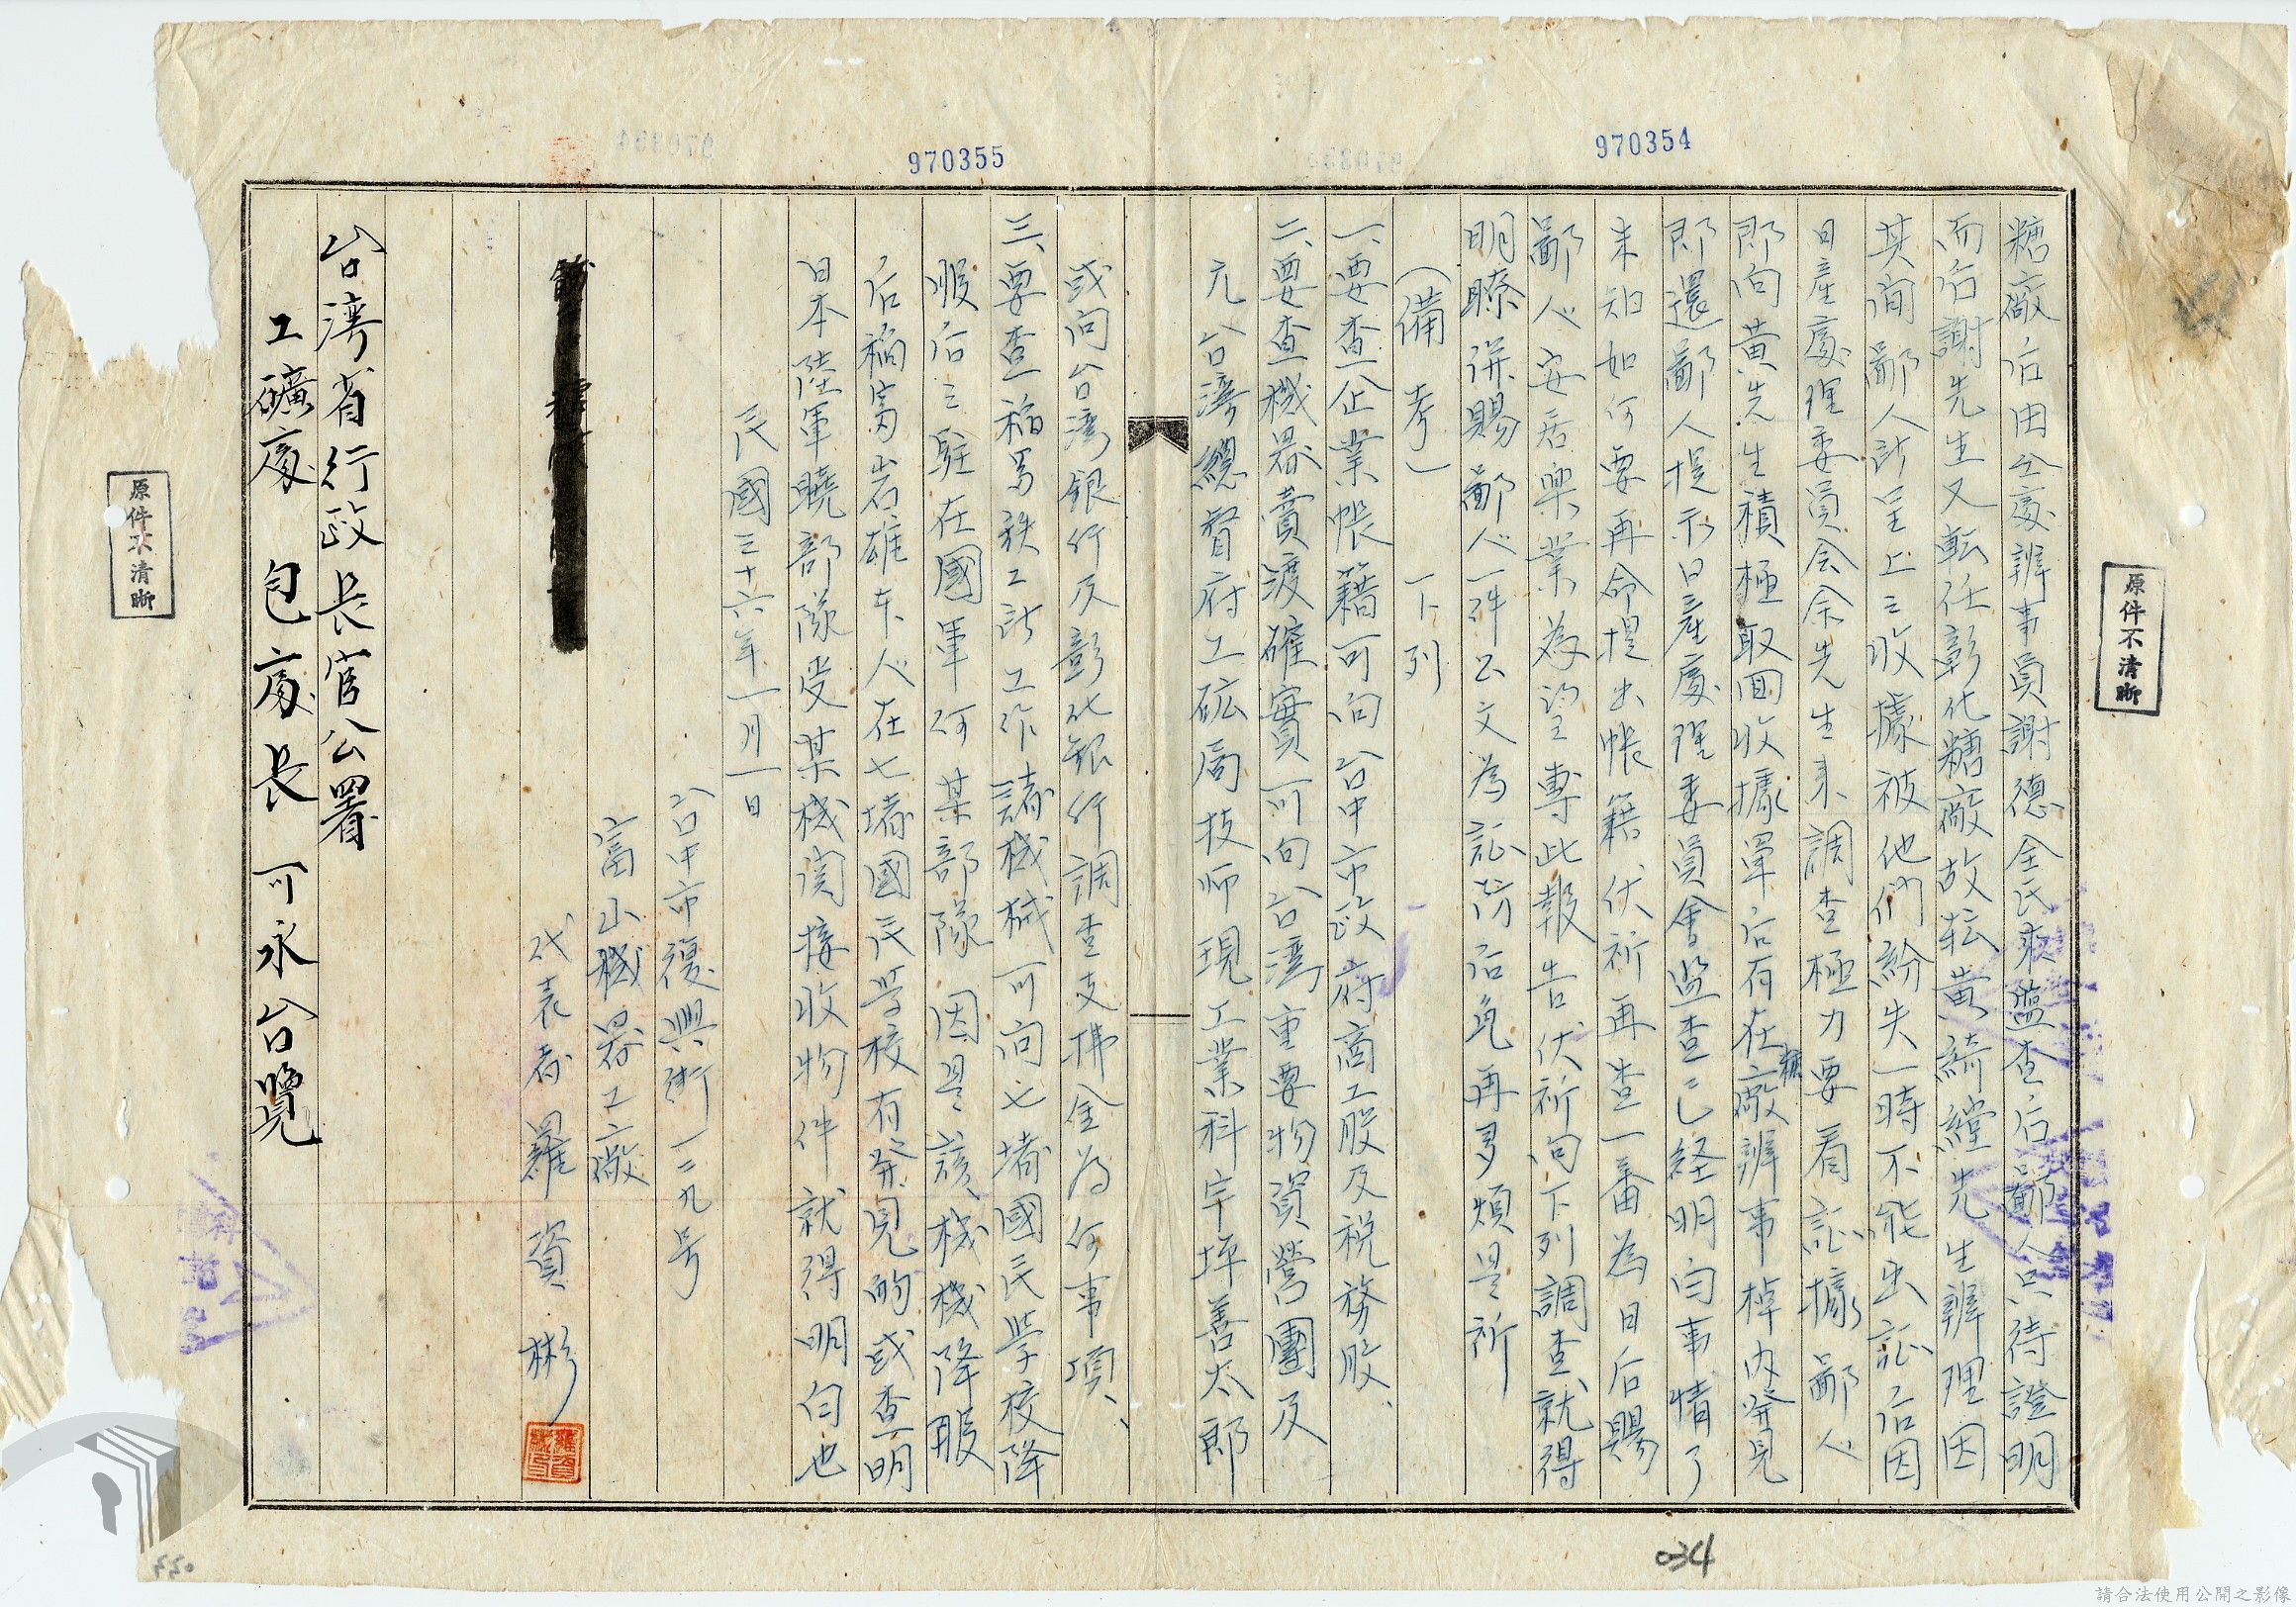 970354
970355
糖廠后由公處辦事員謝德全氏來盤查后鄙人只待證明
而后謝先生又転任彰化糖廠故転黄綺鏜先生辦理因
其间鄙人所呈上之收據被他們紛失一時不能出証后因
日產處理委員会余先生来調查極力要看証據鄙人
即向黄先生積極取回收據單后有在糖廠辦事棹内発見
即還鄙人提示日產處理委員會监查已経明白事情了
未知如何要再命提出帐籍伏祈再查一番為日后賜
鄙人安居樂業為望專此報告伏祈向下列調查就得
明瞭併賜鄙人一件公文為証防后免再多煩是祈
(備考)下列
一、要查企業帳籍可向台中市政府商工股及税務股、
二、要查機器賣渡確實可向台湾重要物資營團及
元台湾總督府工砿局技师現工業科宇坪善太郎
或向台湾銀行及彰化銀行調查支拂金為何事項、
三、要查福富鉄工所工作諸機械可向七堵國民学校降
服后之駐在國軍何某部隊因是該機械降服
后福富岩雄本人在七堵國民学校有発見的或查明
日本陸軍曉部隊受某機関接收物件就得明白也
民國三十六年一月一日
台中市復興街一二九号
富山機器工廠
代表者羅資彬
台湾省行政長官公署
工礦處 包處長 可永台覽
原件不清晰
原件不清晰
034
請合法使用公開之影像